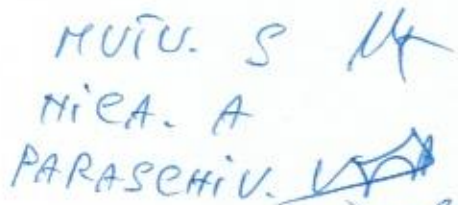 MUTU. S
NICA. A
PARASCHIV.